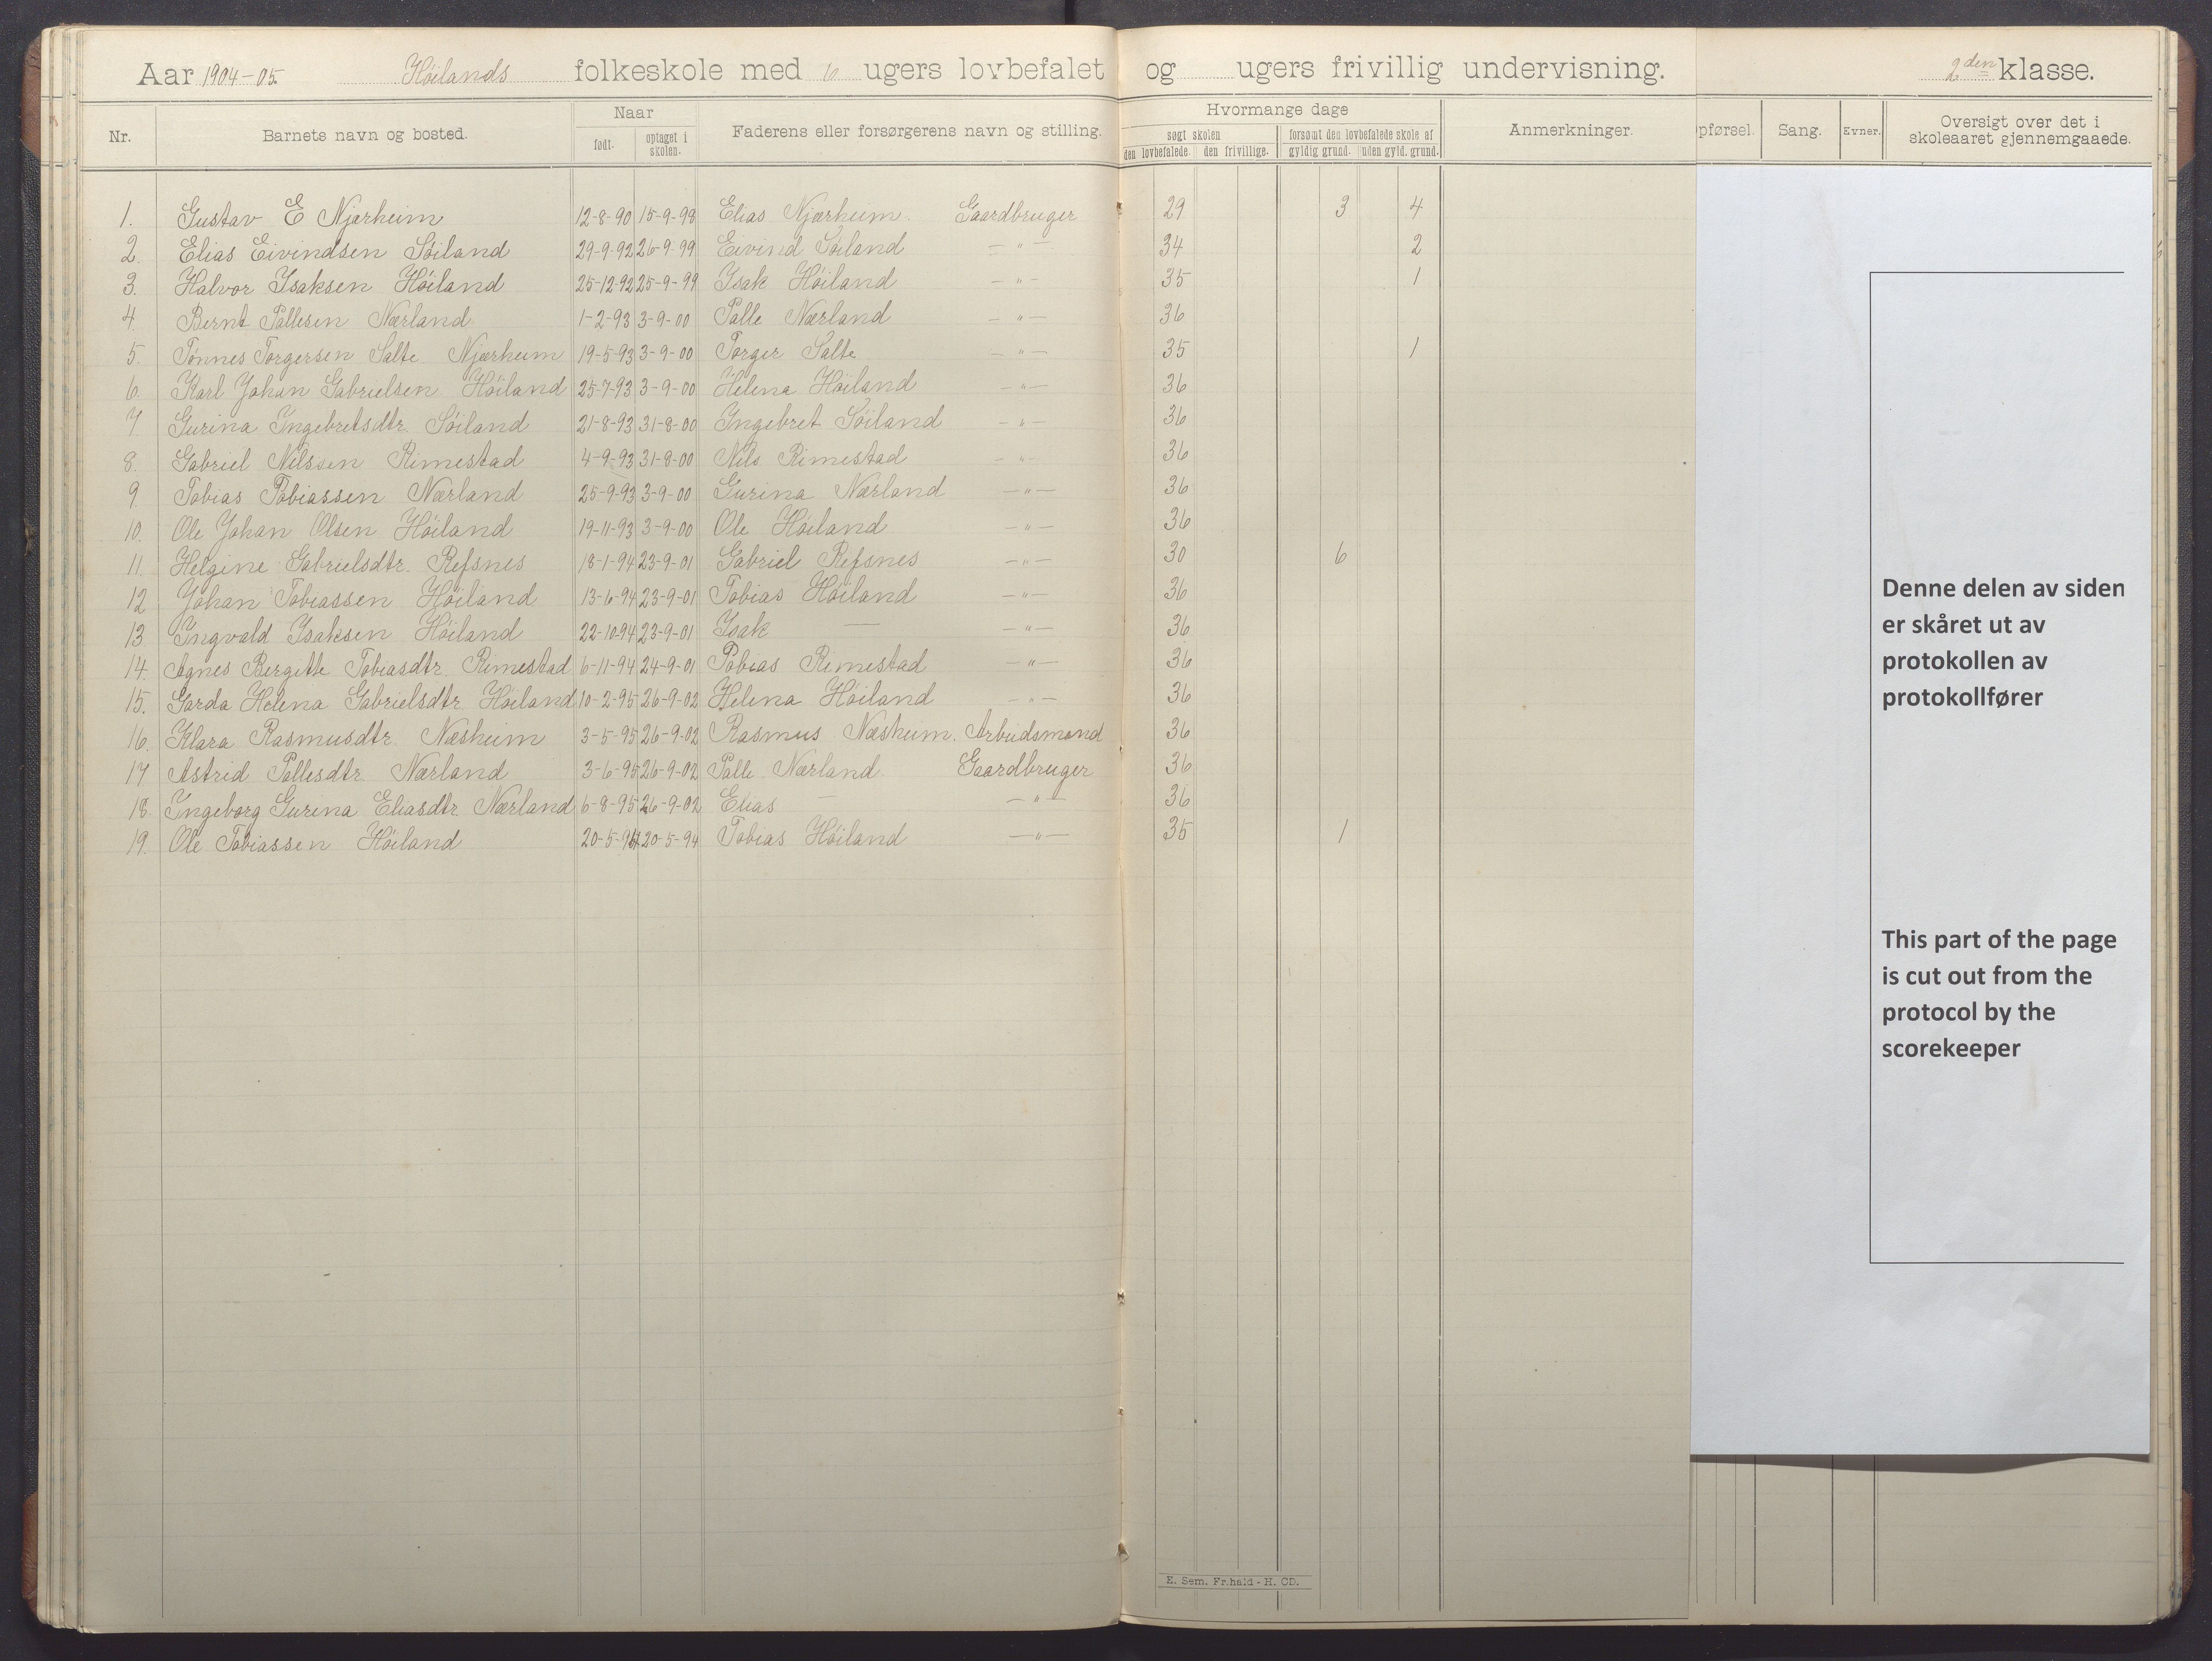 Aar 1904-05. Höilands folkeskole med 6 ugers lovbefalet og ugers frivillig undervisning. 2den klasse.
Nr. Barnets navn og bosted. Naar født. optaget i skolen. Faderens eller forsørgerens navn og stilling. Hvormange dage søgt skolen den lovbefalede. den frivillige. forsømt den lovbefalede skole af gyldig grund. uden gyld. grund. Anmerkninger. pførsel. Sang. Evner. Oversigt over det i skoleaaret gjennemgaaede.
1. Gustav E Njærheim 12-8-90 15-9-98 Elias Njærheim. Gaardbruger 29 3 4
2. Elias Eivindsen Söiland 29-9-92 26-9-99 Eivind Söiland — " — 34 2
3. Halvor Isaksen Höiland 25-12-92 25-9-99 Isak Höiland — " — 35 1
4. Bernt Pallesen Nærland 1-2-93 3-9-00 Palle Nærland — " — 36
5. Tönnes Torgersen Salte Njærheim 19-5-93 3-9-00 Torger Salte — " — 35 1
6. Karl Johan Gabrielsen Höiland 25-7-93 3-9-00 Helena Höiland — " — 36
7. Gurina Ingebretsdtr. Söiland 21-8-93 31-8-00 Ingebret Söiland — " — 36
8. Gabriel Nilssen Rimestad 4-9-93 31-8-00 Nils Rimestad — " — 36
9. Tobias Tobiassen Nærland 25-9-93 3-9-00 Gurina Nærland — " — 36
10. Ole Johan Olsen Höiland 19-11-93 3-9-00 Ole Höiland — " — 36
11. Helgine Gabrielsdtr. Refsnes 18-1-94 23-9-01 Gabriel Refsnes — " — 30 6
12 Johan Tobiassen Höiland 13-6-94 23-9-01 Tobias Höiland — " — 36
13. Ingvald Isaksen Höiland 22-10-94 23-9-01 Isak — — " — 36
14. Agnes Bergitte Tobiasdtr. Rimestad 6-11-94 24-9-01 Tobias Rimestad — " — 36
15. Garda Helena Gabrielsdtr. Höiland 10-2-95 26-9-02 Helena Höiland — " — 36
16. Klara Rasmusdtr. Næsheim 3-5-95 26-9-02 Rasmus Næsheim. Arbeidsmand 36
17 Astrid Pallesdtr. Nærland 3-6-95 26-9-02 Palle Nærland. Gaardbruger 36
18. Ingeborg Gurina Eliasdtr. Nærland 6-8-95 26-9-02 Elias — — " — 36
19. Ole Tobiassen Höiland 20-5-91 20-5-94 Tobias Höiland — " — 35 1
Denne delen av siden
er skåret ut av
protokollen av
protokollfører
This part of the page
is cut out from the
protocol by the
scorekeeper
E. Sem. Fr.hald - H. CD.